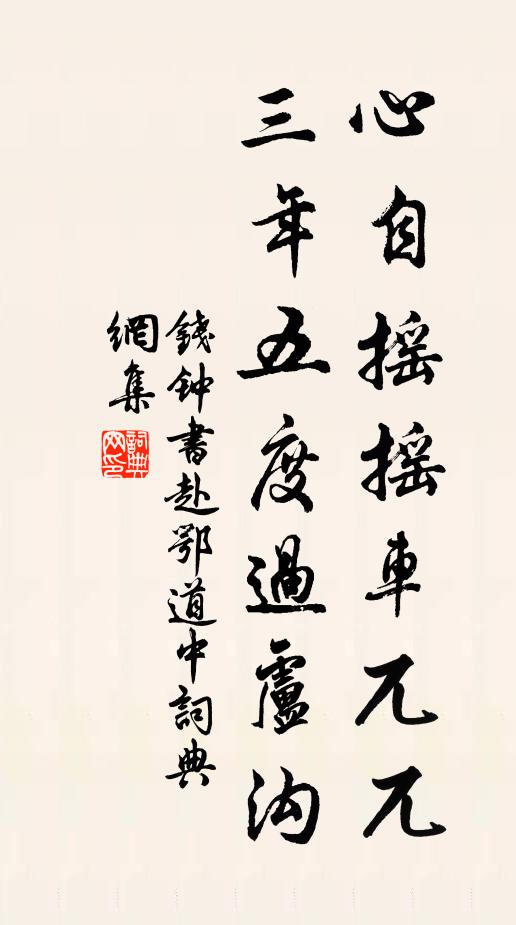 心自摇摇車兀兀
三年五度過盧沟
錢钟書赴鄂道中詞典
網集
詞典網印